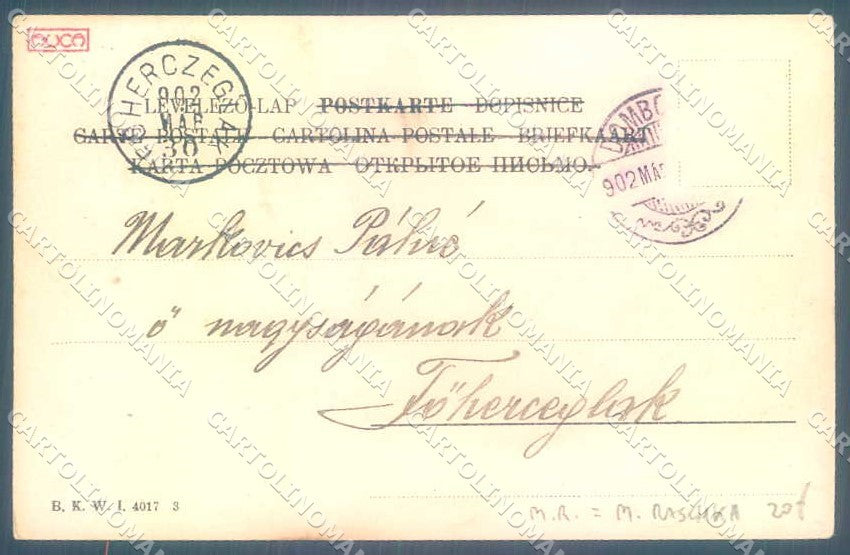 FŐHERCZEGLAK
902
MAR
30
LEVELEZŐ-LAP POSTKARTE DOPISNICE
CARTE POSTALE CARTOLINA POSTALE BRIEFKAART
KARTA POCZTOWA ОТКРЫТОЕ ПИСЬМО.
DOMBO
902 MAR
Markovics Pálné
ő nagyságának
Főherceglak
B. K. W. I. 4017 3
M.R. = M. RASCHKA 20
CARTOLINOMANIA